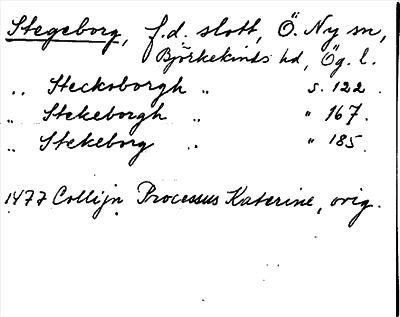 Stegeborg, f.d. slott, Ö. Ny sn,
Björkekinds hd, Ög. l.
" Stecksborgh " s. 122.
" Stekeborgh " " 167.
" Stekeborg " " 185.
1477 Collijn Processus Katerine, orig.